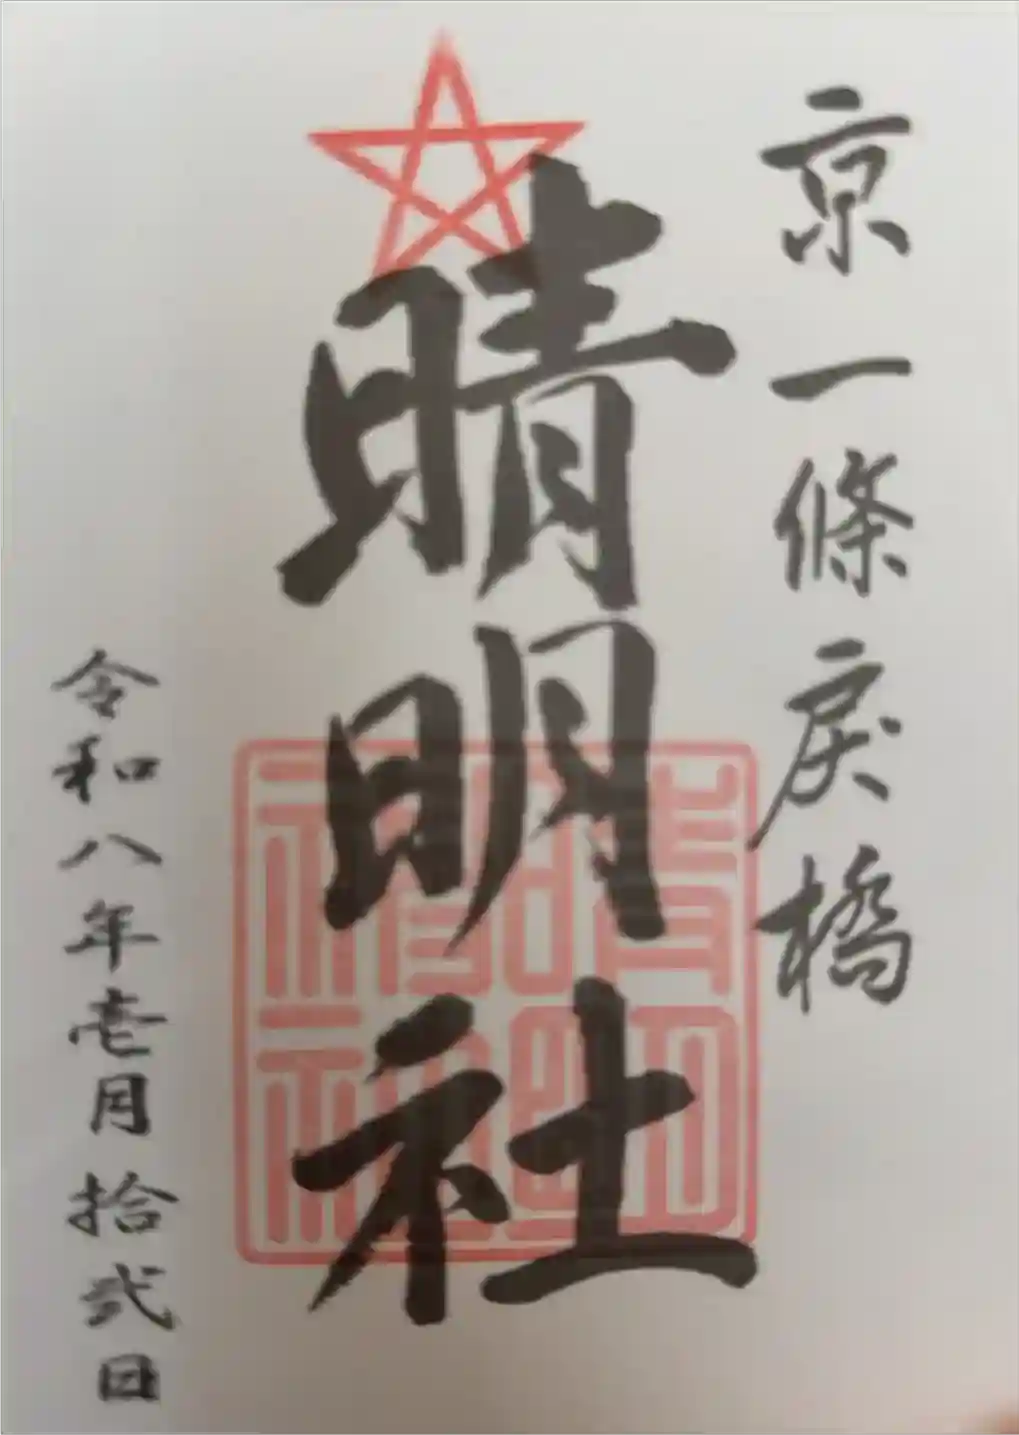 京一條戻橋
晴明社
晴明神社
令和八年壱月拾弐日